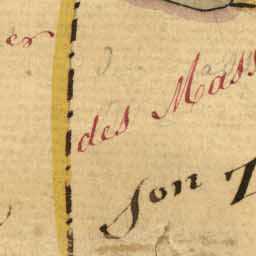 er
des Mass
Son